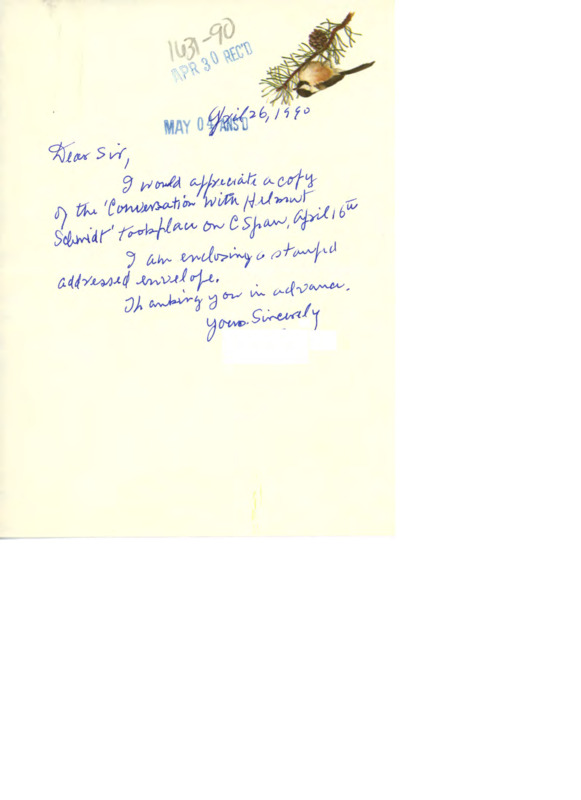 1631-90
APR 30 REC'D
April 26, 1990
MAY 04 ANS'D
Dear Sir,
I would appreciate a copy
of the 'Conversation With Helmut
Schmidt' took place on C Span, April 16th
I am enclosing a stamped
addressed envelope.
Thanking you in advance.
Yours Sincerely